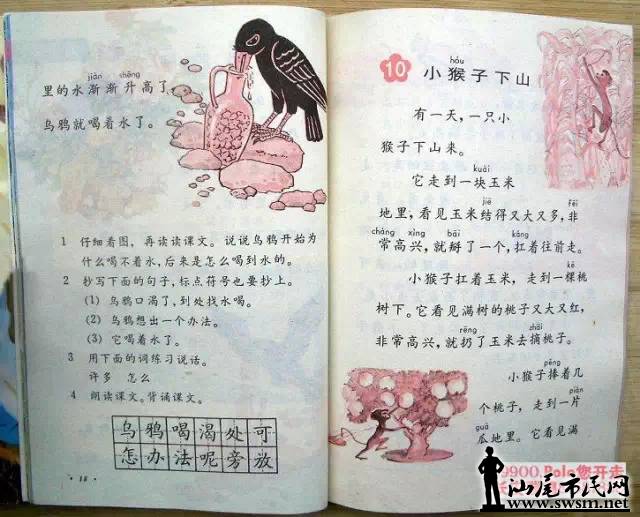 jiàn shēng
里的水渐渐升高了,
乌鸦就喝着水了。
1 仔细看图,再读读课文。说说乌鸦开始为
什么喝不着水,后来是怎么喝到水的。
2 抄写下面的句子,标点符号也要抄上。
(1) 乌鸦口渴了,到处找水喝。
(2) 乌鸦想出一个办法。
(3) 它喝着水了。
3 用下面的词练习说话。
许多 怎么
4 朗读课文。背诵课文。
乌鸦喝渴处可
怎办法呢旁放
· 18 ·
hóu
10 小猴子下山
有一天,一只小
猴子下山来。
kuài
它走到一块玉米
jiē fēi
地里,看见玉米结得又大又多,非
cháng xìng bāi káng
常高兴,就掰了一个,扛着往前走。
kē
小猴子扛着玉米,走到一棵桃
树下。它看见满树的桃子又大又红,
rēng zhāi
非常高兴,就扔了玉米去摘桃子。
pěng
小猴子捧着几
piàn
个桃子,走到一片
guā
瓜地里。它看见满
9900 Polo您开走
汕尾市民网
www.swsm.net